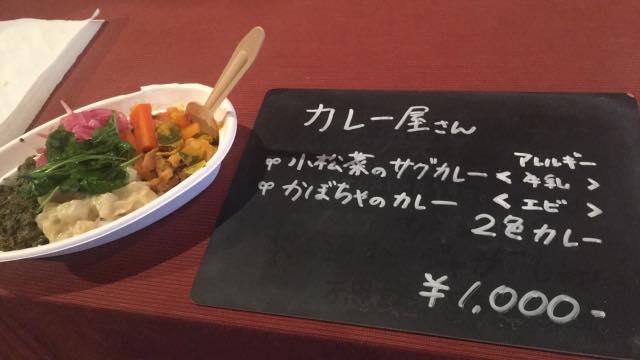 カレー屋さん
アレルギー
小松菜のサグカレー < 牛乳 >
かぼちゃのカレー < エビ >
2色カレー
¥1,000-